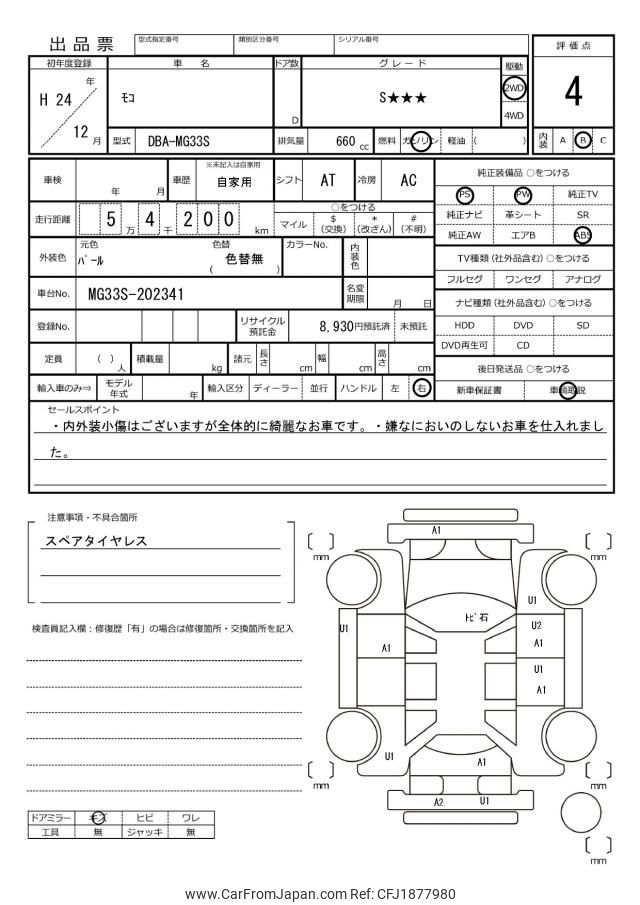 出品票
型式指定番号 類別区分番号 シリアル番号
評価点
4
初年度登録 車名 ドア数 グレード 駆動
H 24 年 12 月
ﾓｺ
D
S★★★
2WD
4WD
型式 DBA-MG33S 排気量 660 cc 燃料 ガソリン 軽油 ( )
内装 A B C
車検 年 月 車歴 ※未記入は自家用 自家用 シフト AT 冷房 AC
走行距離 5 万 4 千 2 0 0 km
○をつける
マイル $(交換) *(改ざん) #(不明)
外装色 元色 ﾊﾟｰﾙ 色替 ( 色替無 ) カラーNo. 内装色
車台No. MG33S-202341 名変期限 月 日
登録No. リサイクル預託金 8,930円預託済 未預託
定員 ( ) 人 積載量 kg 諸元 長さ cm 幅 cm 高さ cm
輸入車のみ⇒ モデル年式 年 輸入区分 ディーラー 並行 ハンドル 左 右
純正装備品 ○をつける
PS PW 純正TV
純正ナビ 革シート SR
純正AW エアB ABS
TV種類 (社外品含む) ○をつける
フルセグ ワンセグ アナログ
ナビ種類 (社外品含む) ○をつける
HDD DVD SD
DVD再生可 CD
後日発送品 ○をつける
新車保証書 車輌取説
セールスポイント
・内外装小傷はございますが全体的に綺麗なお車です。・嫌なにおいのしないお車を仕入れまし
た。
注意事項・不具合箇所
スペアタイヤレス
検査員記入欄：修復歴「有」の場合は修復箇所・交換箇所を記入
A1
mm
mm
U1
ﾄﾋﾞ石
U2
U1
A1
A1
U1
A1
U1
A1
mm
mm
A2 U1
mm
ドアミラー キズ ヒビ ワレ
工具 無 ジャッキ 無
www.CarFromJapan.com Ref: CFJ1877980